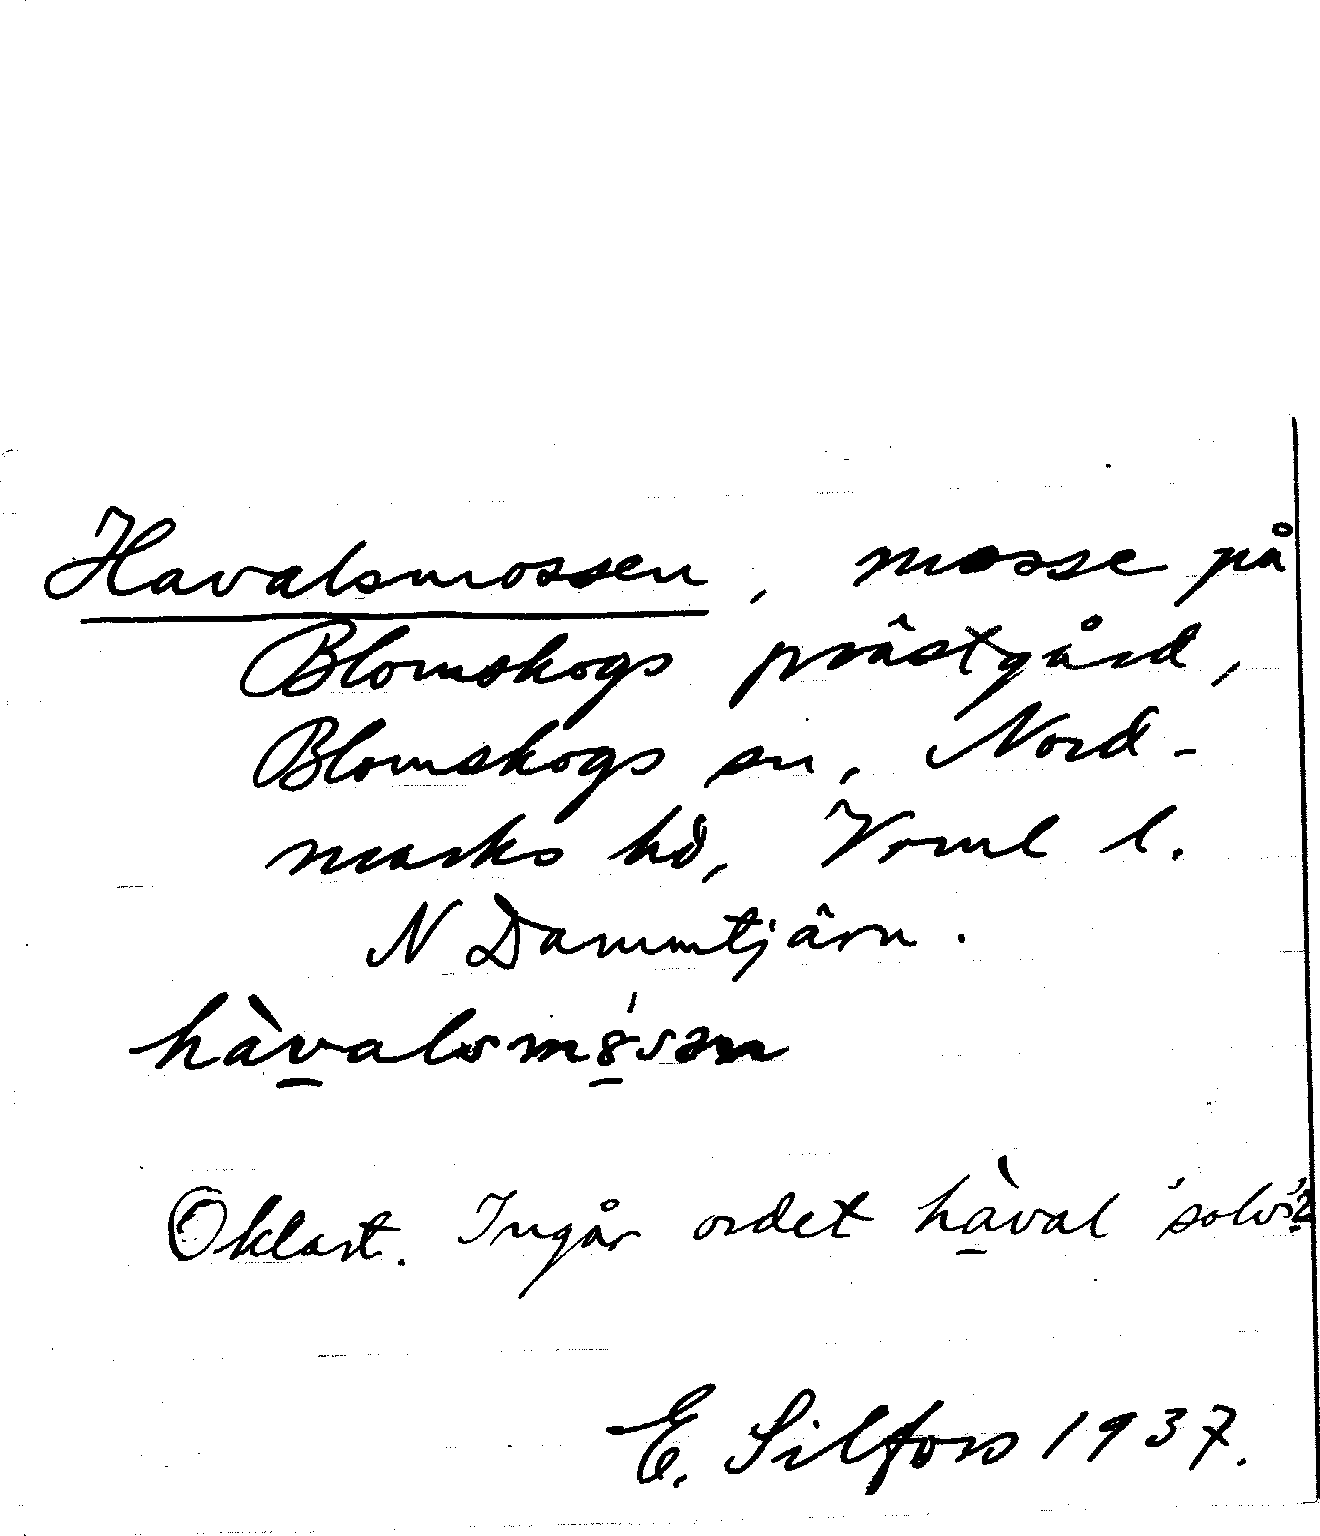 Havalsmossen, mosse på
Blomskogs prästgård,
Blomskogs sn, Nord-
marks hd, Vrml l.
N Dammtjärn.
hàv̲alsm8̲́sən
Oklart. Ingår ordet hà̲val 'solv'?
E. Silfors 1937.